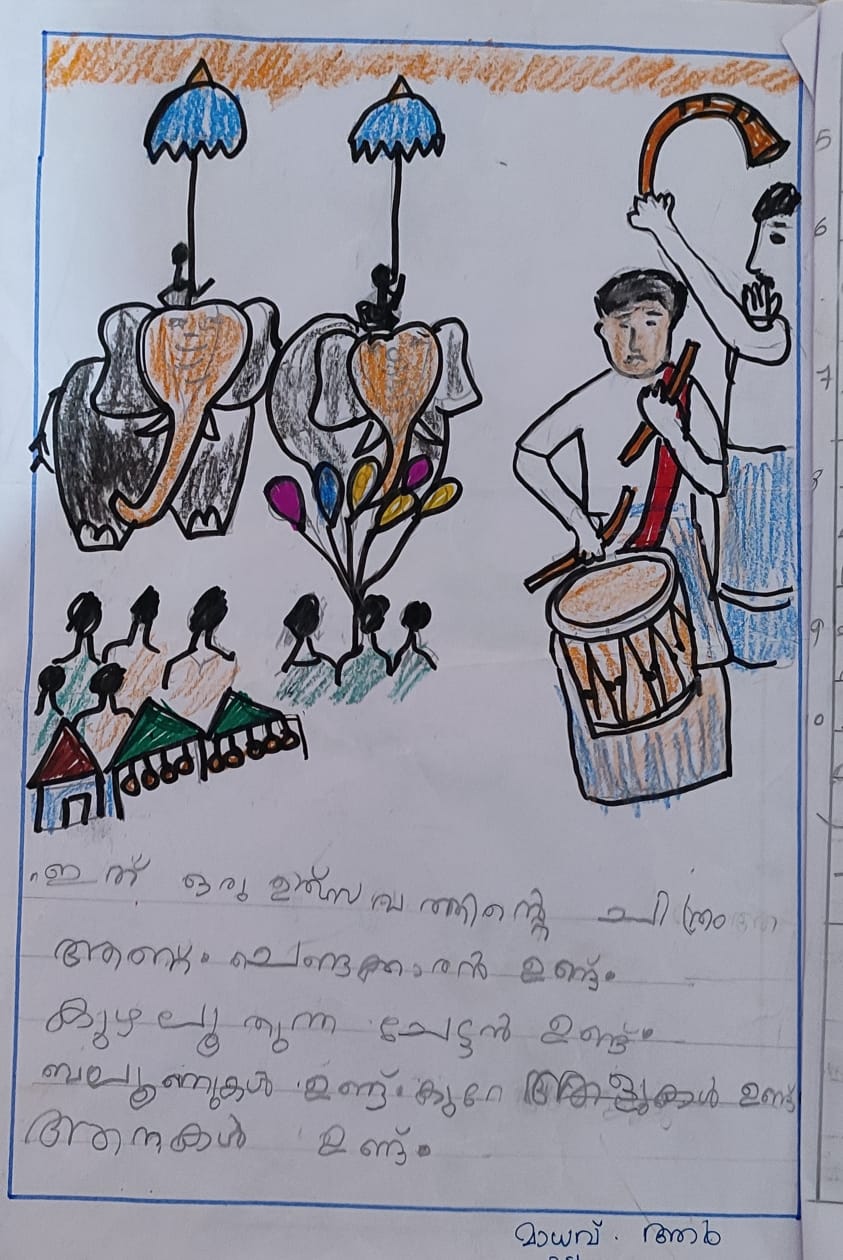 ഇത് ഒരു ഉത്സവത്തിന്റെ ചിത്രം
ആണ്. ചെണ്ടക്കാരൻ ഉണ്ട്.
കുഴലൂതുന്ന ചേട്ടൻ ഉണ്ട്.
ബലൂണുകൾ ഉണ്ട്. കുറേ ആളുകൾ ഉണ്ട്
ആനകൾ ഉണ്ട്.
മാധവ്. ആർ
5
6
7
8
9